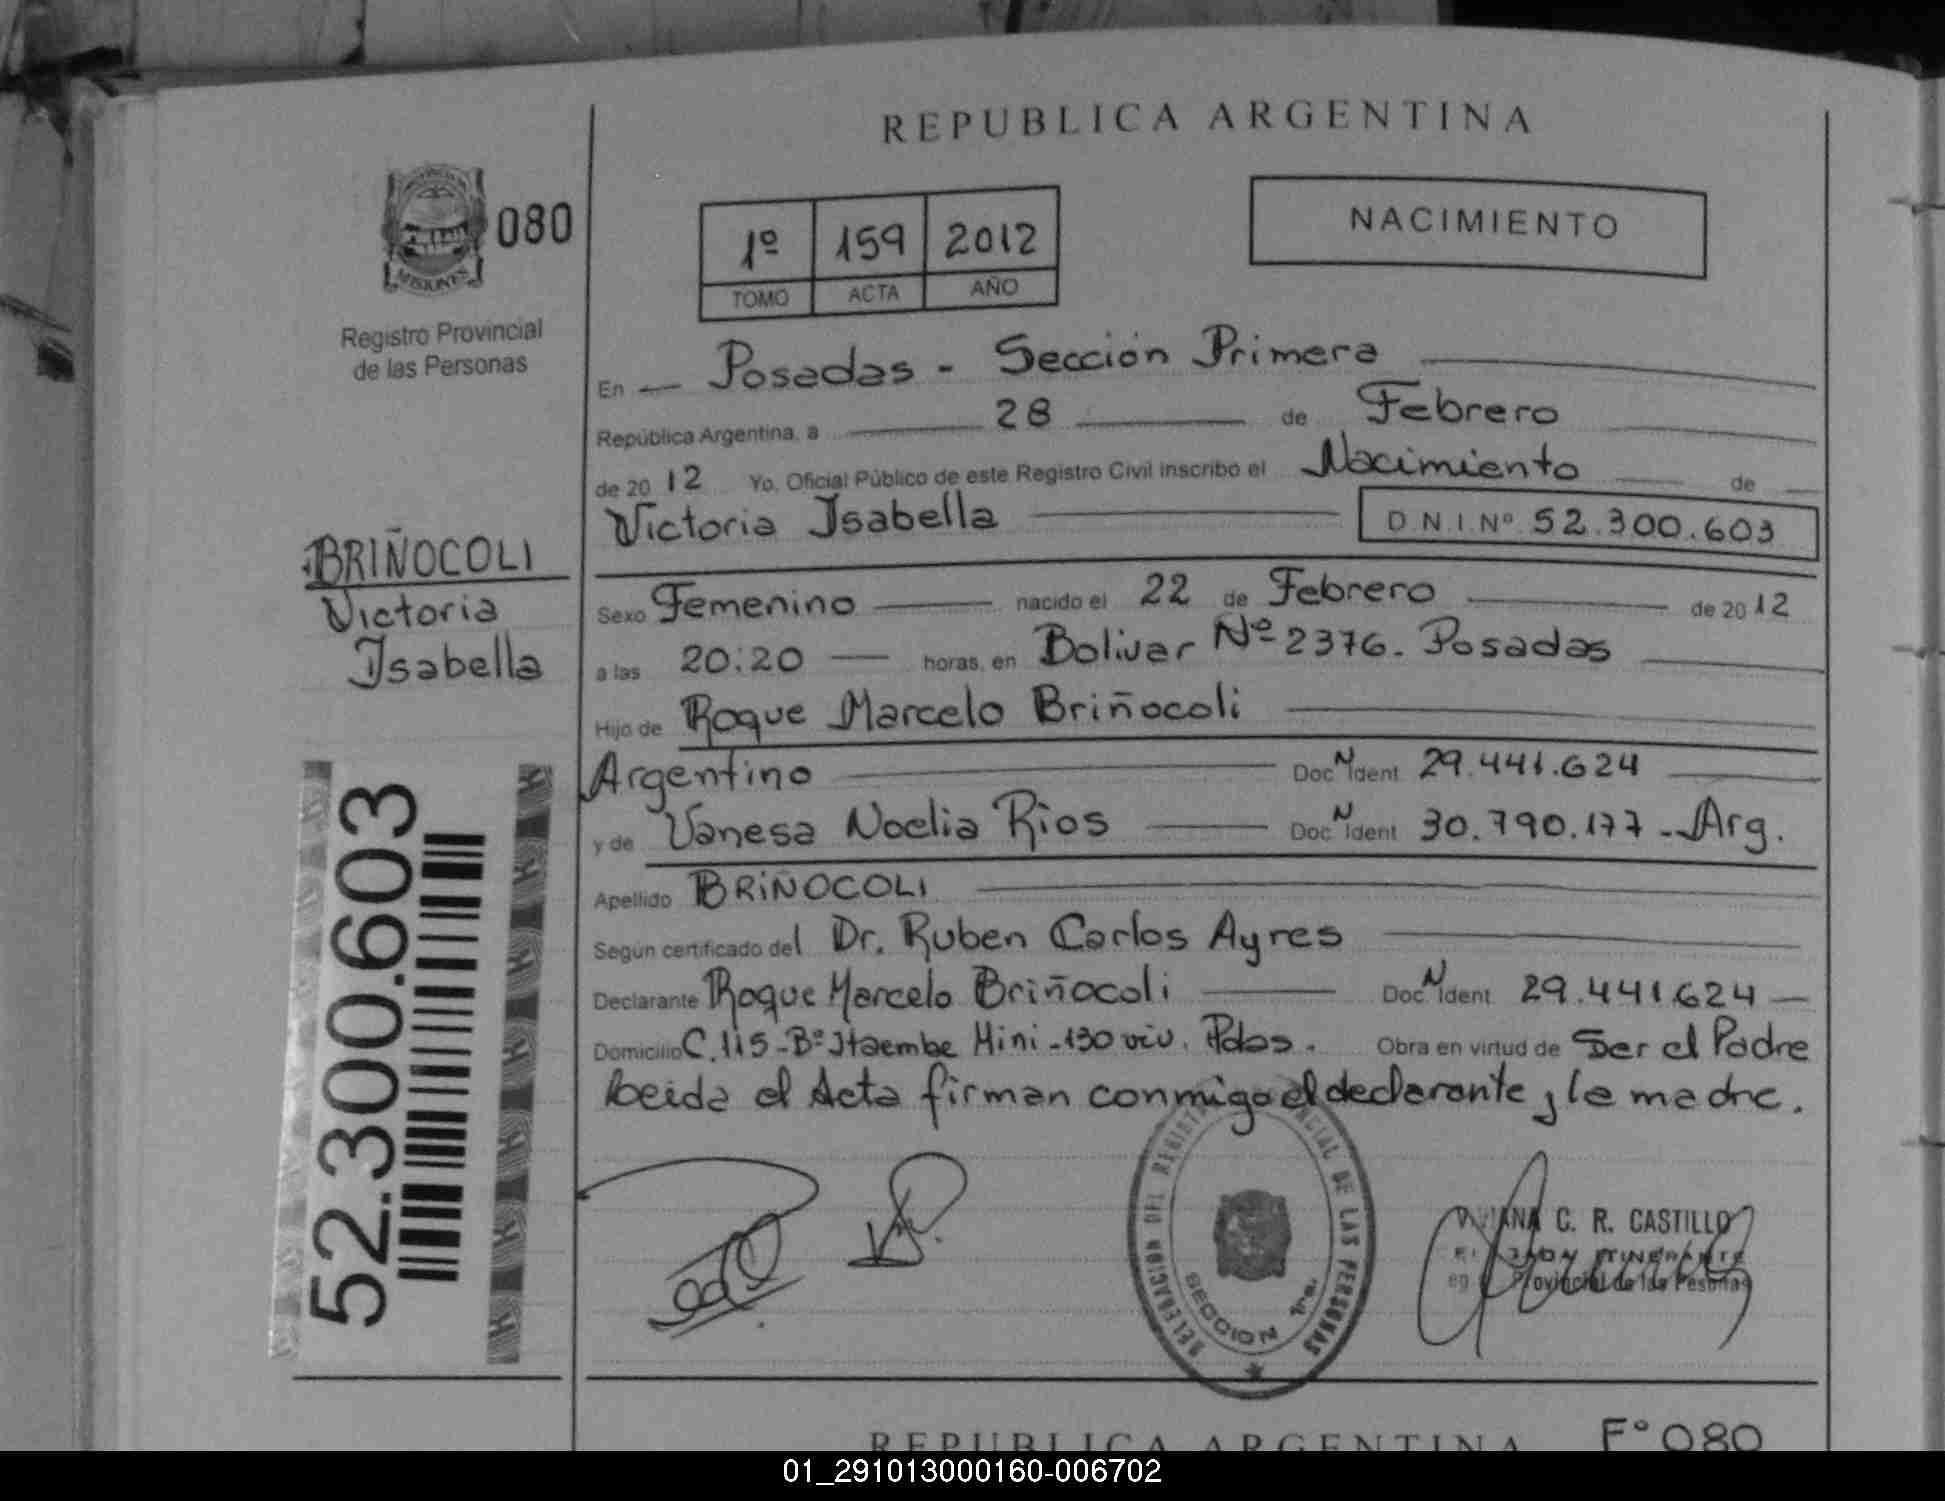 REPUBLICA ARGENTINA
MISIONES
080
Registro Provincial
de las Personas
1º 159 2012
TOMO ACTA AÑO
NACIMIENTO
En Posadas - Sección Primera
República Argentina, a 28 de Febrero
de 2012 Yo, Oficial Público de este Registro Civil inscribo el Nacimiento de
Victoria Isabella D.N.I.Nº 52.300.603
BRIÑOCOLI
Victoria
Isabella
Sexo Femenino nacido el 22 de Febrero de 2012
a las 20:20 horas, en Bolivar Nº 2376. Posadas
Hijo de Roque Marcelo Briñocoli
Argentino Doc. N Ident 29.441.624
y de Vanesa Noelia Rios Doc. N Ident 30.790.177 - Arg.
Apellido BRIÑOCOLI
Según certificado del Dr. Ruben Carlos Ayres
Declarante Roque Marcelo Briñocoli Doc. N Ident 29.441.624
Domicilio C. 115 - Bº Itaembe Mini - 130 viv. Pdas. Obra en virtud de Ser el Padre
Leida el Acta firman conmigo el declarante y la madre.
52.300.603
DELEGACION DEL REGISTRO PROVINCIAL DE LAS PERSONAS
SECCION 1ra.
VIVIANA C. R. CASTILLO
ITINERANTE
Provincial de las Personas
REPUBLICA ARGENTINA
Fº 080
01_291013000160-006702